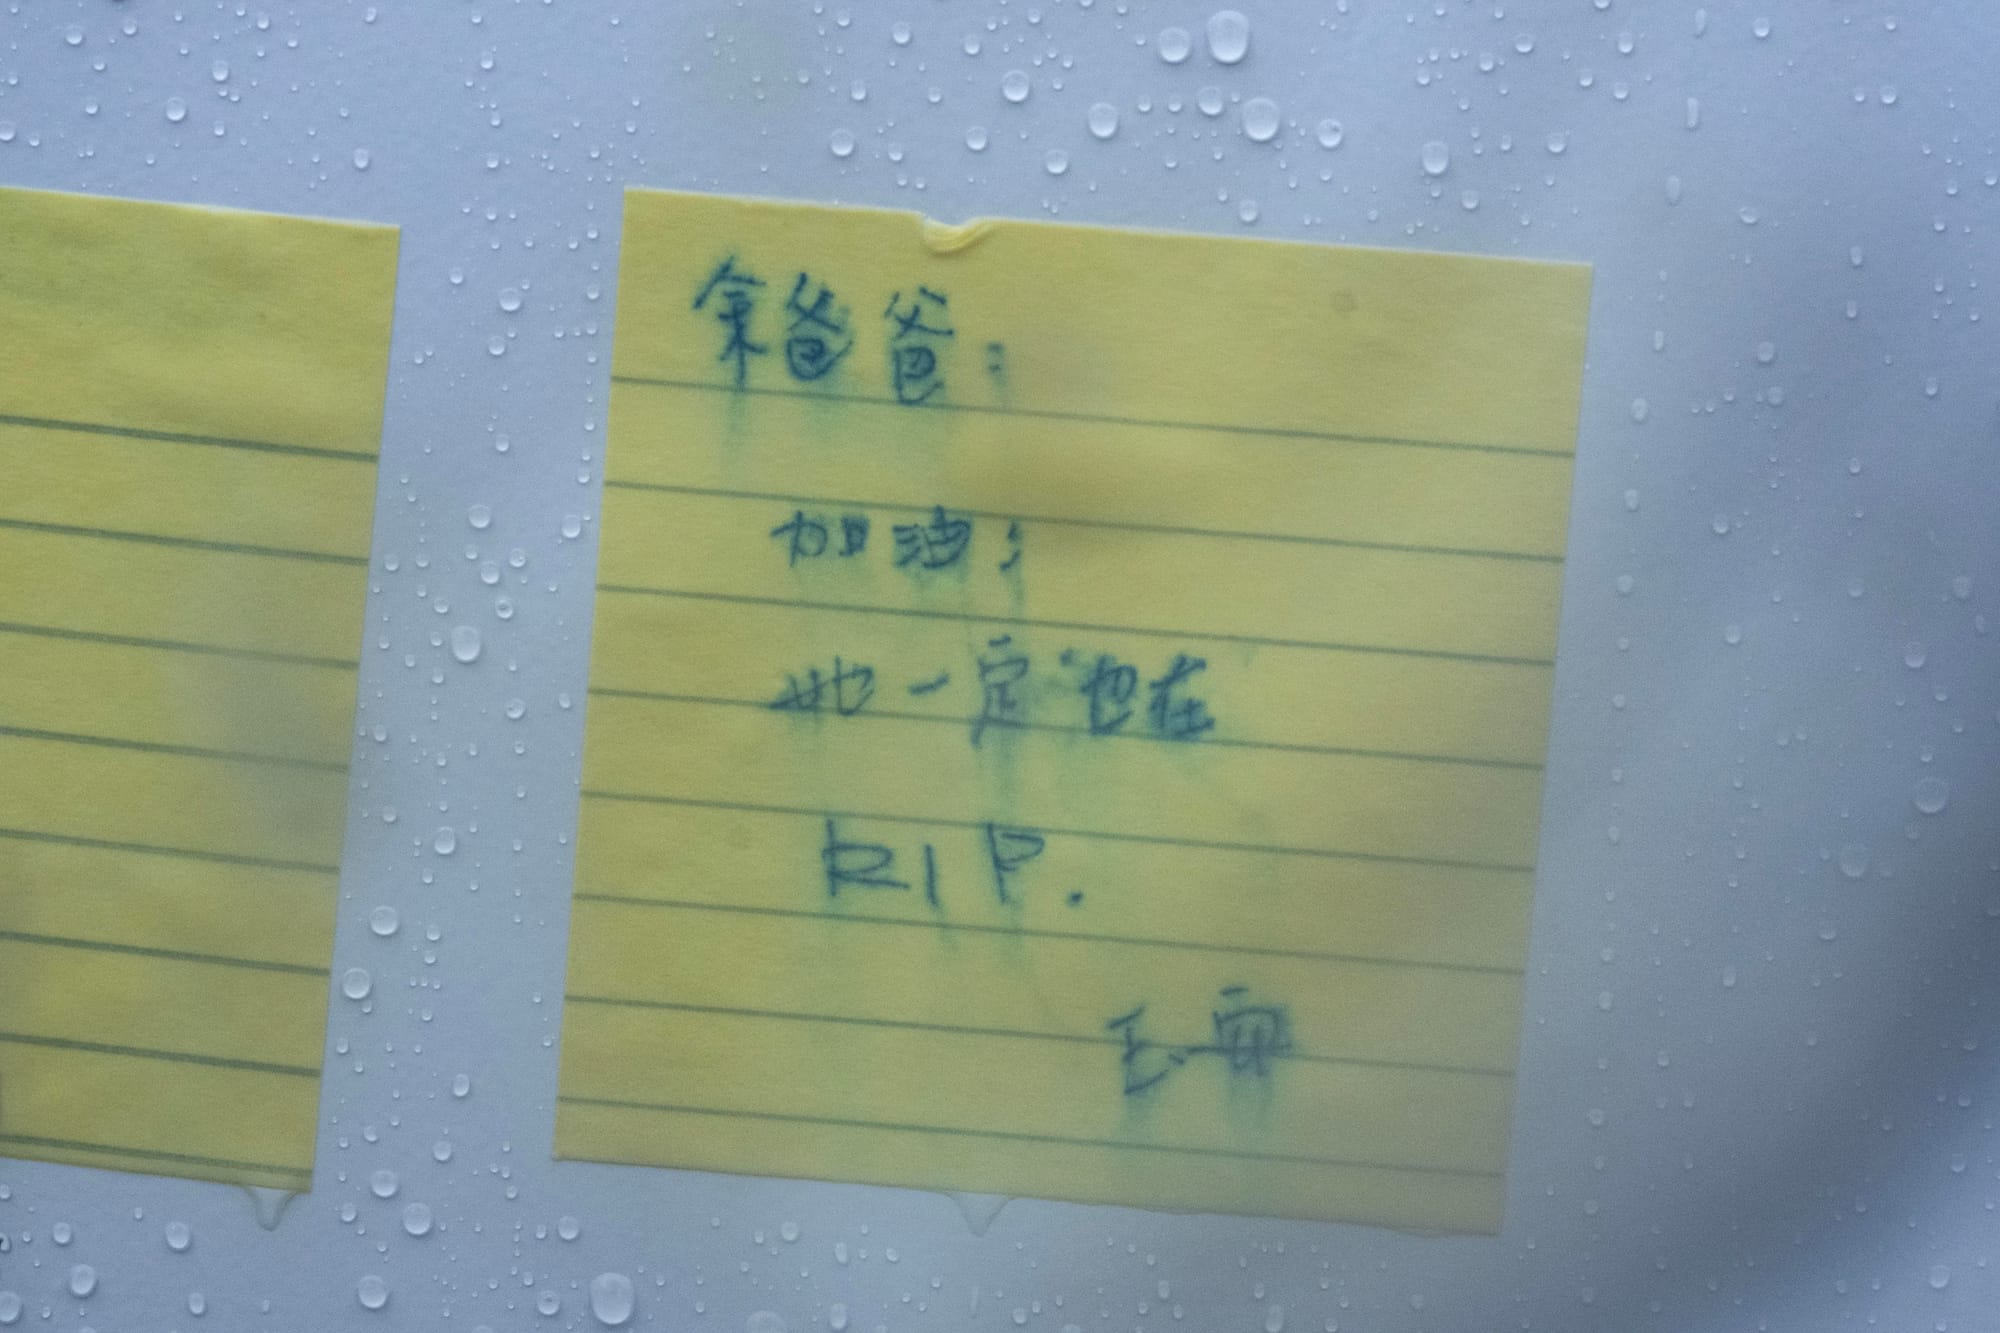 爸爸：
加油！
她一定也在
RIP.